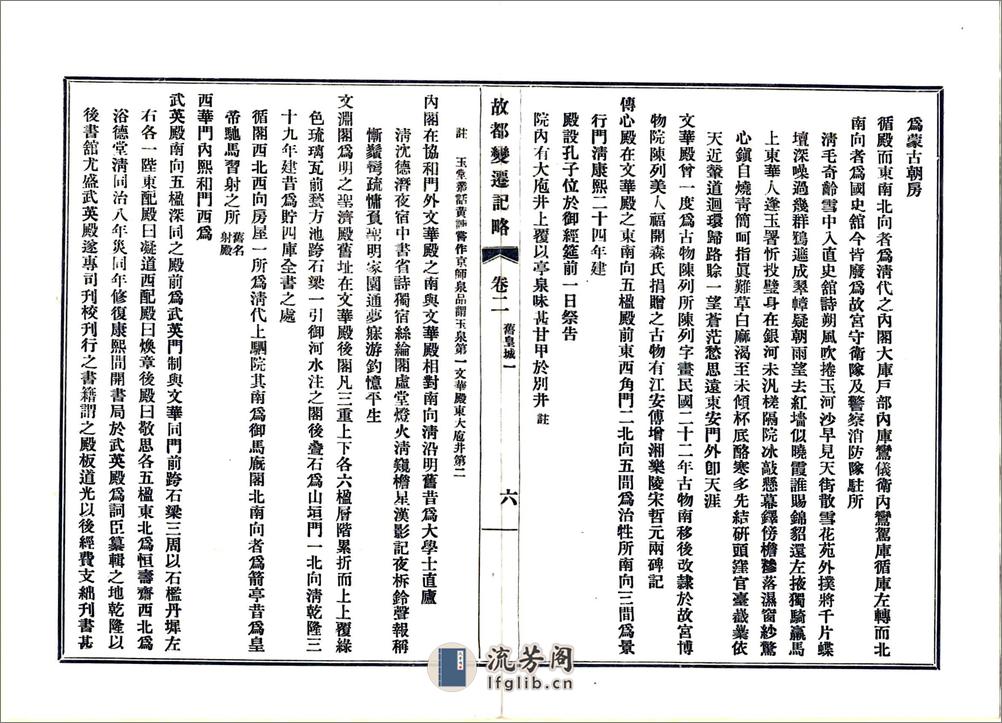 爲蒙古朝房
循殿而東南北向者爲淸代之內閣大庫戶部內庫鸞儀衛內鸞駕庫循庫左轉而北
南向者爲國史舘今皆廢爲故宮守衛隊及警察消防隊駐所
淸毛奇齡雪中入直史舘詩朔風吹捲玉河沙早見天街散雪花苑外撲將千片蝶
壇深噪過幾群鴉遍成翠幛疑朝雨望去紅墻似曉霞誰賜錦貂還左掖獨騎羸馬
上東華人逢玉署忻投璧身在銀河未汎槎隔院冰敲懸幕鐸傍檐聲落濕窗紗驚
心鎭自燒靑簡呵指眞難草白麻渴至未傾杯底酪寒多先結硏頭窪官臺藏藁依
天近輦道迴環歸路賒一望蒼茫愁思遠東安門外卽天涯
文華殿曾一度爲古物陳列所陳列字畫民國二十二年古物南移後改隸於故宮博
物院陳列美人福開森氏捐贈之古物有江安傅增湘樂陵宋哲元兩碑記
傳心殿在文華殿之東南向五楹殿前東西角門二北向五間爲治牲所南向三間爲景
行門淸康熙二十四年建
殿設孔子位於御經筵前一日祭告
院內有大庖井上覆以亭泉味甚甘甲於別井 註
故都變遷記略 卷二 舊皇城一 六
註 玉堂叢話黃諫嘗作京師泉品謂玉泉第一文華殿東大庖井第二
內閣在協和門外文華殿之南與文華殿相對南向淸沿明舊昔爲大學士直廬
淸沈德潛夜宿中書省詩獨宿絲綸閣虛堂燈火淸窺檐星漢影記夜柝鈴聲報稱
慚鬢髩疏慵負聖明家園通夢寐游釣憶平生
文淵閣爲明之聖濟殿舊址在文華殿後閣凡三重上下各六楹層階累折而上上覆綠
色琉璃瓦前甃方池跨石梁一引御河水注之閣後疊石爲山垣門一北向淸乾隆三
十九年建昔爲貯四庫全書之處
循閣西北西向房屋一所爲淸代上駟院其南爲御馬厩閣北南向者爲箭亭昔爲皇
帝馳馬習射之所 舊名射殿
西華門內熙和門西爲
武英殿南向五楹深同之殿前爲武英門制與文華同門前跨石梁三周以石檻丹墀左
右各一陛東配殿曰凝道西配殿曰煥章後殿曰敬思各五楹東北爲恒壽齋西北爲
浴德堂淸同治八年災同年修復康熙間開書局於武英殿爲詞臣纂輯之地乾隆以
後書舘尤盛武英殿遂專司刊校刊行之書籍謂之殿板道光以後經費支絀刊書甚
流芳阁
lfglib.cn